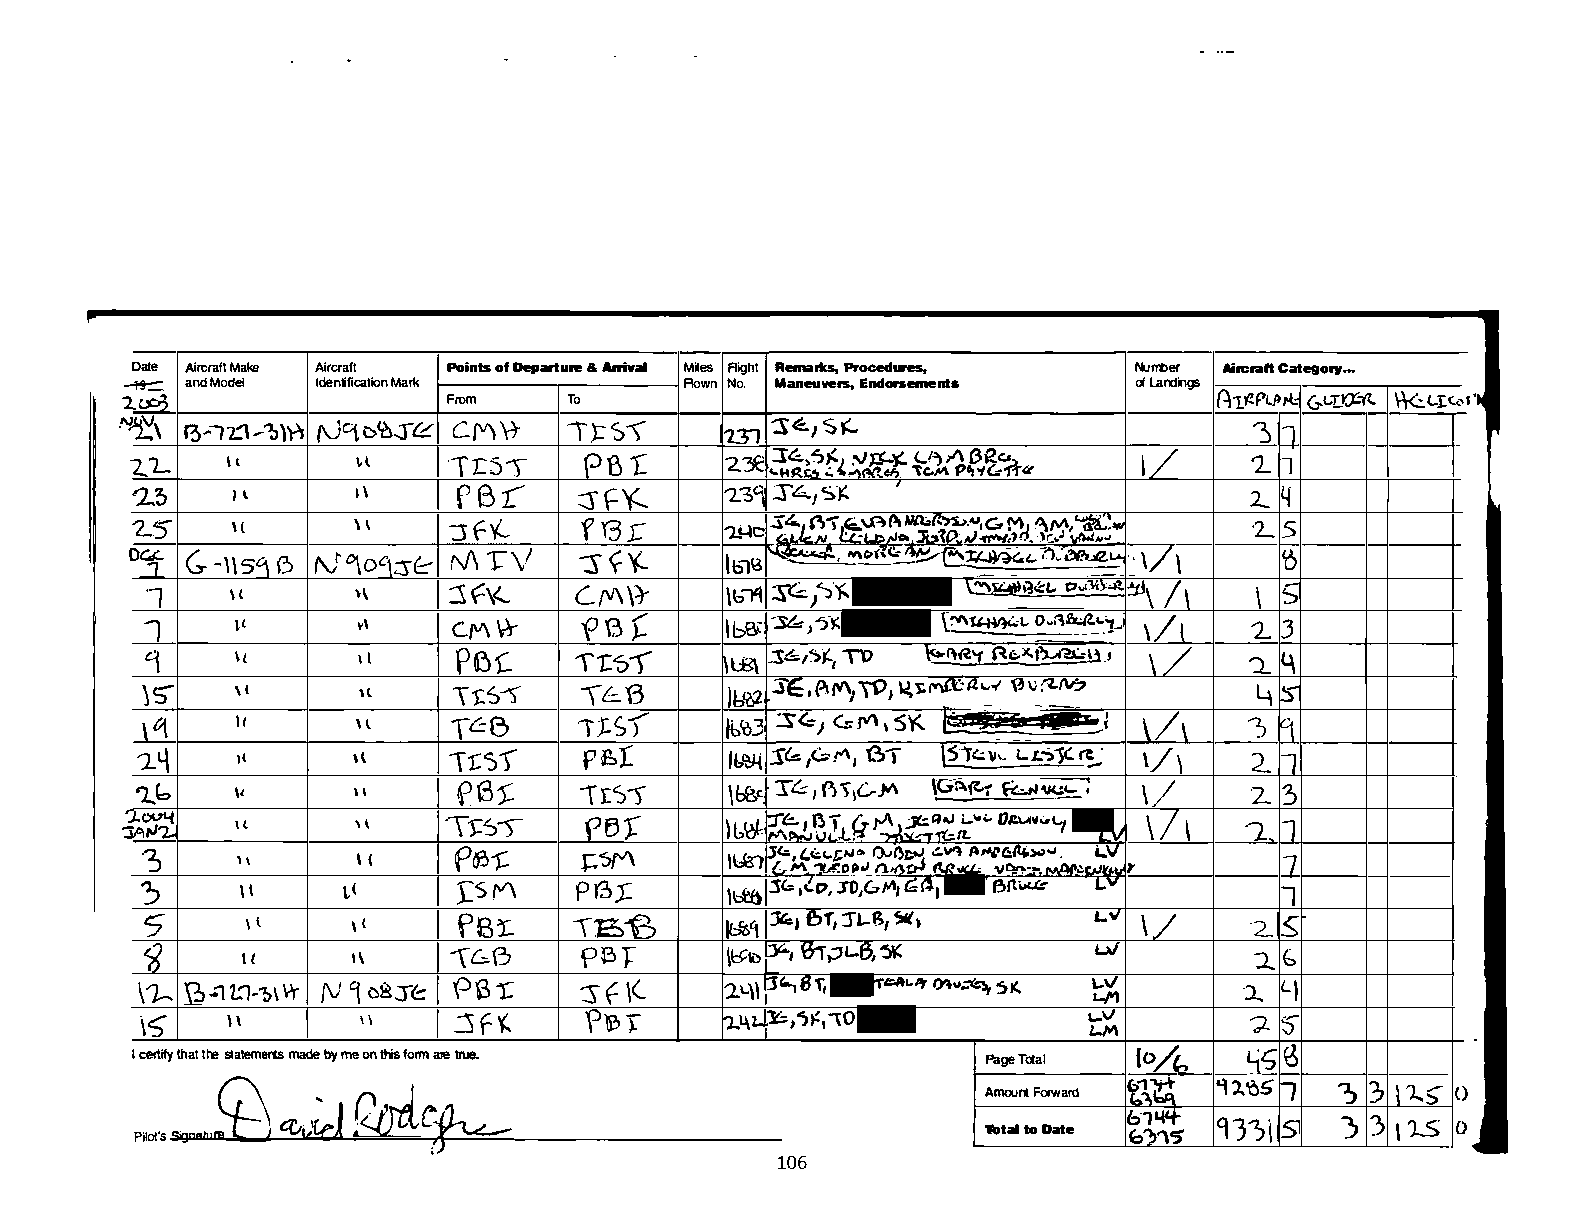 Date Aircraft Make Aircraft Points of Departure & Arrival Miles Flight Remarks, Procedures, Number Aircraft Category...
19 and Model Identification Mark Flown No. Maneuvers, Endorsements of Landings
2003 From To AIRPLANE GLIDER
NOV
21 B-727-31H N908JE CMH TIST 237 JE, SK 3 7
22 " " TIST PBI 238 JE, SK, 1/ 2 7
23 " " PBI JFK 239 JE, SK 2 4
25 " " JFK PBI 240 JE, BT, EVA ANDERSSON, GM, AM, 2 5
DEC
1 G-1159B N909JE MIV JFK 1678 MORGAN MICHAEL DUBBERLY 1/1 8
7 " " JFK CMH 1679 JE, SK MICHAEL DUBBERLY 1/1 1 5
7 " " CMH PBI 1680 JE, SK MICHAEL DUBBERLY 1/1 2 3
9 " " PBI TIST 1681 JE, SK, TD GARY ROXBURGH 1/ 2 4
15 " " TIST TEB 1682 JE, AM, TD, KIMBERLY BURNS 4 5
19 " " TEB TIST 1683 JE, GM, SK 1/1 3 9
24 " " TIST PBI 1684 JE, GM, BT LESTER 1/1 2 7
26 " " PBI TIST 1685 JE, BT, GM GARY 1/ 2 3
2004
JAN 2 " " TIST PBI 1686 JE, BT, GM, JEAN LUC BRUNEL, LV 1/1 2 7
3 " " PBI ISM 1687 JE, CELINA DUBIN, EVA ANDERSSON, LV 7
GM, JORDAN DUBIN
3 " " ISM PBI 1688 JE, CD, JD, GM, EA, BRUCE LV 7
5 " " PBI TEB 1689 JE, BT, JLB, SK, LV 1/ 2 5
8 " " TEB PBI 1690 JE, BT, JLB, SK LV 2 6
12 B-727-31H N908JE PBI JFK 241 JE, BT, TEALA DAVIES, SK LV 2 4
LM
15 " " JFK PBI 242 JE, SK, TD LV 2 5
LM
I certify that the statements made by me on this form are true. Page Total 10/6 45 8
Amount Forward 6734 6369 9285 7 3 3 125 0
Pilot's Signature David Rodgers Total to Date 6744 6375 9331 5 3 3 125 0
106